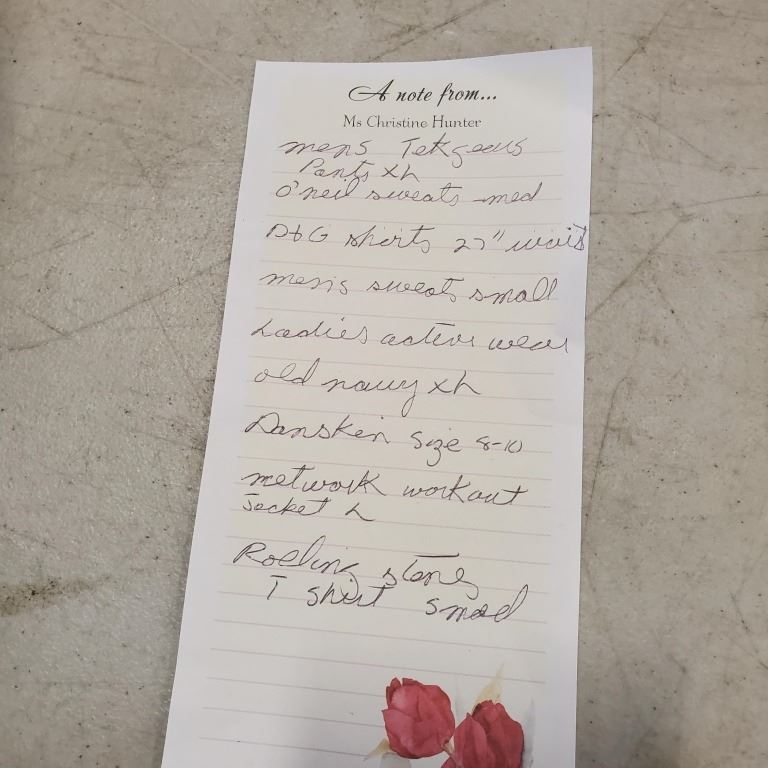 A note from...
Ms Christine Hunter
mens Tek gear
Pants xL
O'neil sweats med
D&G shirts 27" waist
mens sweats small
Ladies active wear
old navy xL
Danskin size 8-10
network workout
Jacket L
Rolling stones
T shirt small